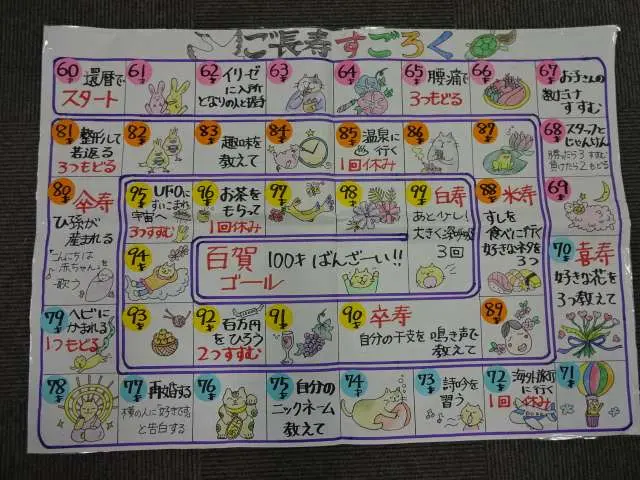 ご長寿すごろく
60才 還暦で
スタート
61才
62才 イリーゼ
に入所
となりの人と握手
63才
64才
65才 腰痛で
3つもどる
66才
67才 お子さんの
数だけ
すすむ
68才 スタッフと
じゃんけん
勝ったら3つすすむ
負けたら2つもどる
69才
70才 喜寿
好きな花を
3つ教えて
71才
72才 海外旅行
に行く
1回休み
73才 詩吟を
習う
74才
75才 自分の
ニックネーム
教えて
76才
77才 再婚する
隣の人に好きです
と告白する
78才
79才 ヘビに
かまれる
1つもどる
80才 傘寿
ひ孫が
産まれる
こんにちは
赤ちゃんを
歌う
81才 整形して
若返る
3つもどる
82才
83才 趣味を
教えて
84才
85才 温泉に
行く
1回休み
86才
87才
88才 米寿
すしを
食べに行く
好きなネタを
3つ
89才
90才 卒寿
自分の干支を鳴き声で
教えて
91才
92才 百万円
をひろう
2つすすむ
93才
94才
95才 UFOに
すいこまれ
宇宙へ
3つすすむ
96才 お茶を
もらって
1回休み
97才
98才
99才 白寿
あと少し!
大きく深呼吸
3回
百賀
ゴール
100才ばんざーい!!